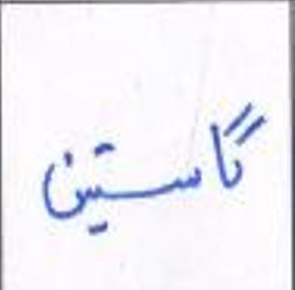 گاستین